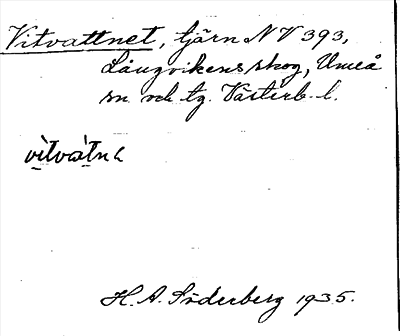 Vitvattnet, tjärn NV 393,
Långvikens skog, Umeå
sn och tg. Västerb. l.
H. A. Söderberg 1935.